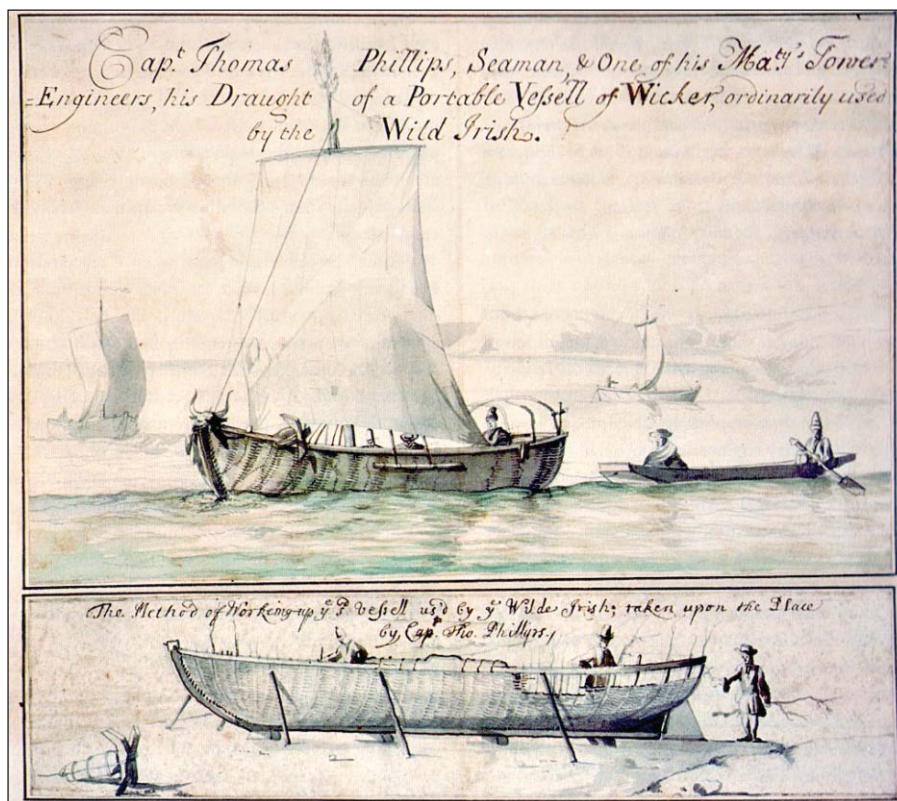 Capt. Thomas Phillips, Seaman, & One of his Maty's Tower
=Engineers, his Draught of a Portable Vessell of Wicker, ordinarily used
by the Wild Irish.
The Method of Working up ye sd Vessell us'd by ye Wilde Irish; taken upon the Place
by Capt. Tho. Phillips,